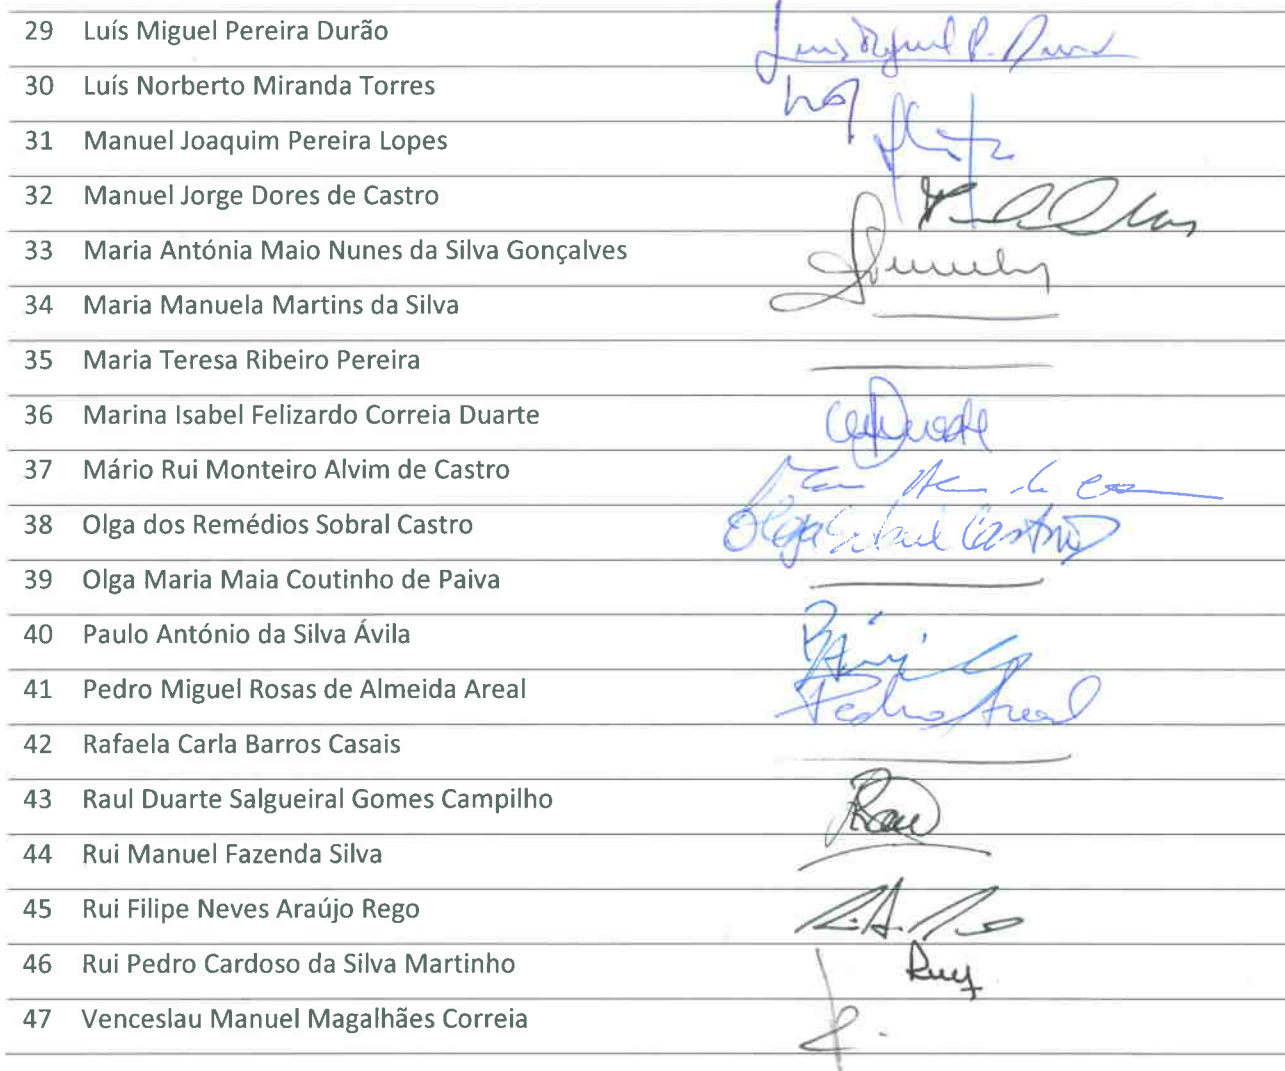 29 Luís Miguel Pereira Durão Luis Miguel P.
30 Luís Norberto Miranda Torres
31 Manuel Joaquim Pereira Lopes
32 Manuel Jorge Dores de Castro
33 Maria Antónia Maio Nunes da Silva Gonçalves
34 Maria Manuela Martins da Silva
35 Maria Teresa Ribeiro Pereira
36 Marina Isabel Felizardo Correia Duarte
37 Mário Rui Monteiro Alvim de Castro
38 Olga dos Remédios Sobral Castro Olga Sobral Castro
39 Olga Maria Maia Coutinho de Paiva
40 Paulo António da Silva Ávila
41 Pedro Miguel Rosas de Almeida Areal Pedro Areal
42 Rafaela Carla Barros Casais
43 Raul Duarte Salgueiral Gomes Campilho Raul
44 Rui Manuel Fazenda Silva
45 Rui Filipe Neves Araújo Rego
46 Rui Pedro Cardoso da Silva Martinho Ruy
47 Venceslau Manuel Magalhães Correia